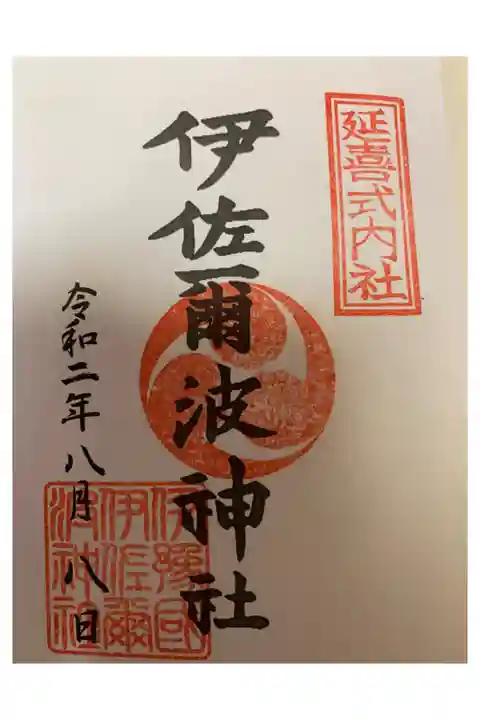 延喜式内社
伊佐爾波神社
令和二年八月八日
伊豫國
伊佐爾
波神社